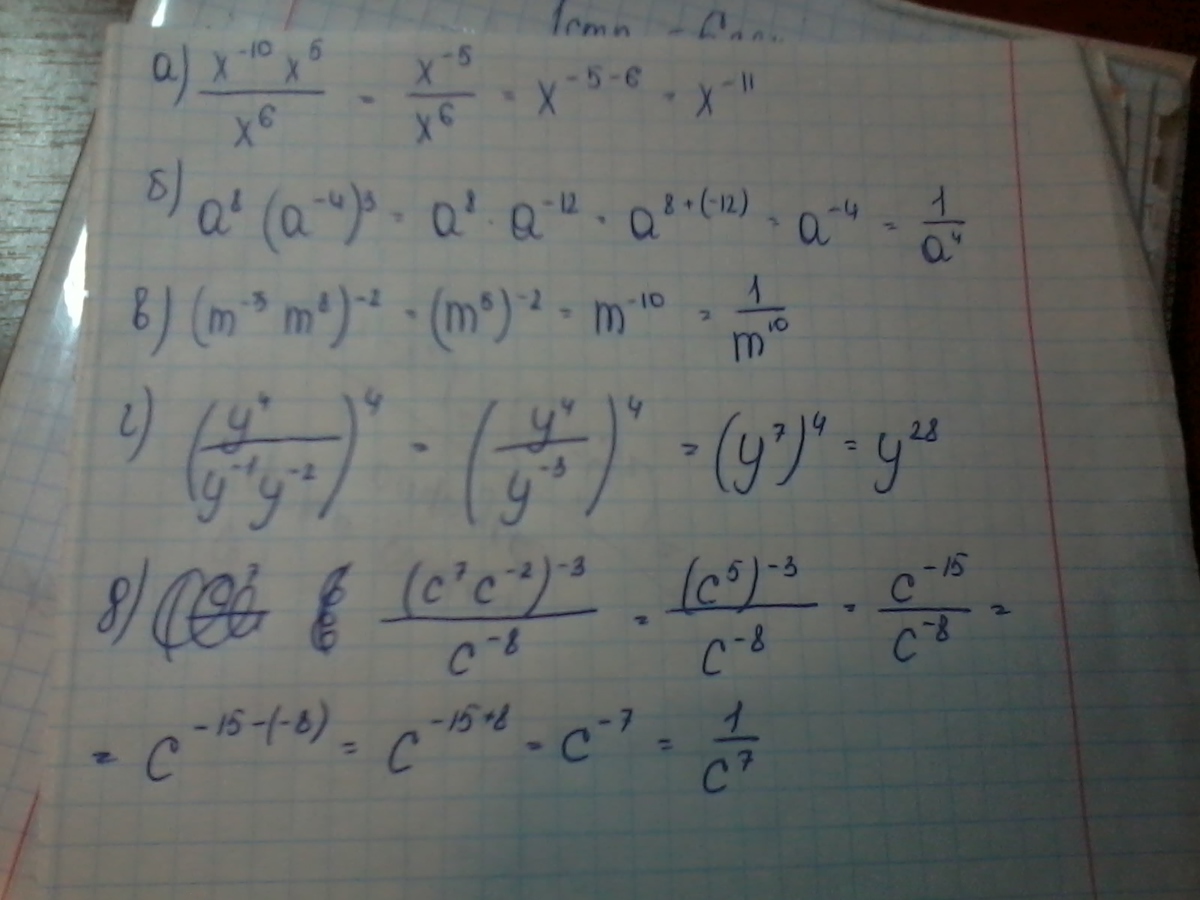 1стр
а) (x⁻¹⁰ x⁵)/x⁶ = x⁻⁵/x⁶ = x⁻⁵⁻⁶ = x⁻¹¹
б) a⁸ (a⁻⁴)³ = a⁸ · a⁻¹² = a⁸⁺⁽⁻¹²⁾ = a⁻⁴ = 1/a⁴
в) (m⁻³ m⁸)⁻² = (m⁵)⁻² = m⁻¹⁰ = 1/m¹⁰
г) (y⁴/(y⁻¹y⁻²))⁴ = (y⁴/y⁻³)⁴ = (y⁷)⁴ = y²⁸
д) (c⁷c⁻²)⁻³/c⁻⁸ = (c⁵)⁻³/c⁻⁸ = c⁻¹⁵/c⁻⁸ =
= c⁻¹⁵⁻⁽⁻⁸⁾ = c⁻¹⁵⁺⁸ = c⁻⁷ = 1/c⁷